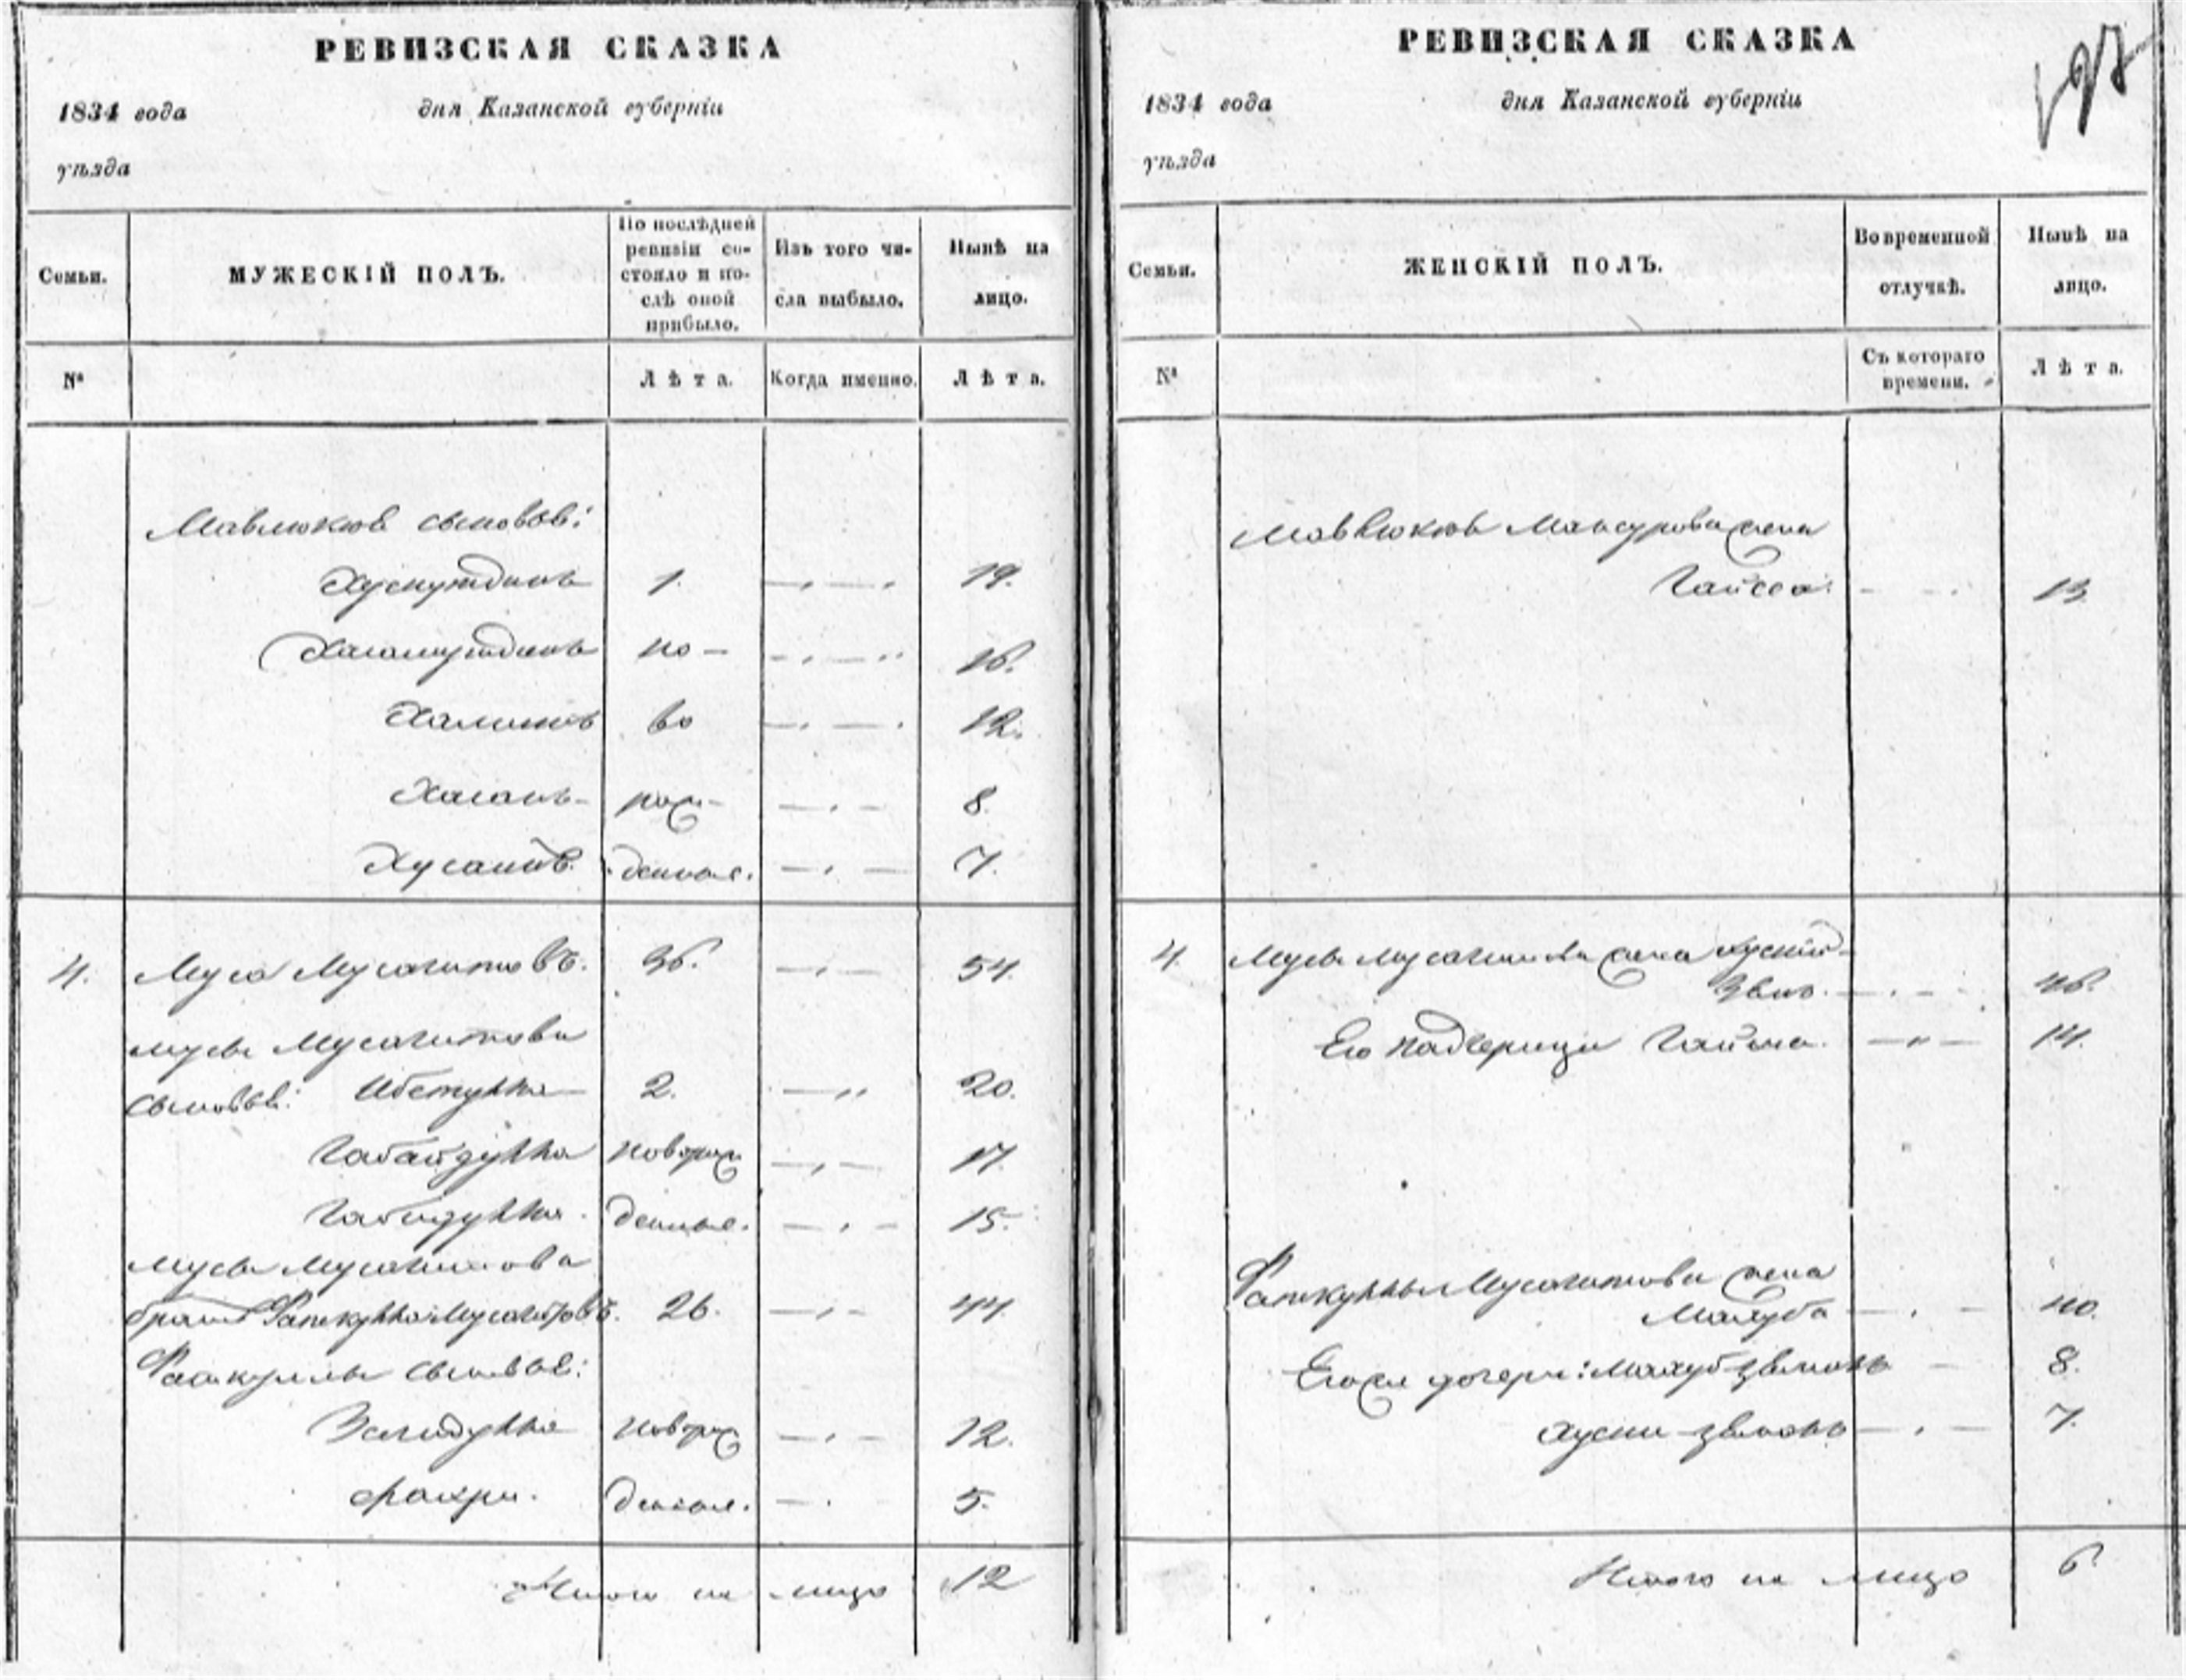 РЕВИЗСКАЯ СКАЗКА
1834 года дня Казанской губерніи
уѣзда
Семьи.
МУЖЕСКІЙ ПОЛЪ.
По послѣдней
ревизіи со-
стояло и по-
слѣ оной
прибыло.
Изъ того чи-
сла выбыло.
Нынѣ на
лицо.
№
Лѣта.
Когда именно.
Лѣта.
Мавлюков сыновья:
Хуснутдинъ 1. 19.
Хисамутдинъ но- 16.
во 12.
Хасанъ рож- 8.
Хусаинъ денные. 7.
4. Муса Мусагитовъ. 36. 54.
Мусы Мусагитова
сыновья: 2. 20.
Габайдулла новорож 17.
Габидулла денные. 15.
Мусы Мусагитова
братъ Фаткулла Мусагитовъ. 26. 44.
Фаткуллы сыновья:
новорож 12.
Фахри. денные. 5.
Итого на лицо 12
РЕВИЗСКАЯ СКАЗКА
197
1834 года дня Казанской губерніи
уѣзда
Семьи.
ЖЕНСКІЙ ПОЛЪ.
Во временной
отлучкѣ.
Нынѣ на
лицо.
№
Съ котораго
времени.
Лѣта.
Мансурова жена
4. Мусы Мусагитова жена
46.
Его падчерица 14.
Фаткуллы Мусагитова жена
Махуба 40.
Его же дочери: 8.
7.
Итого на лицо 6